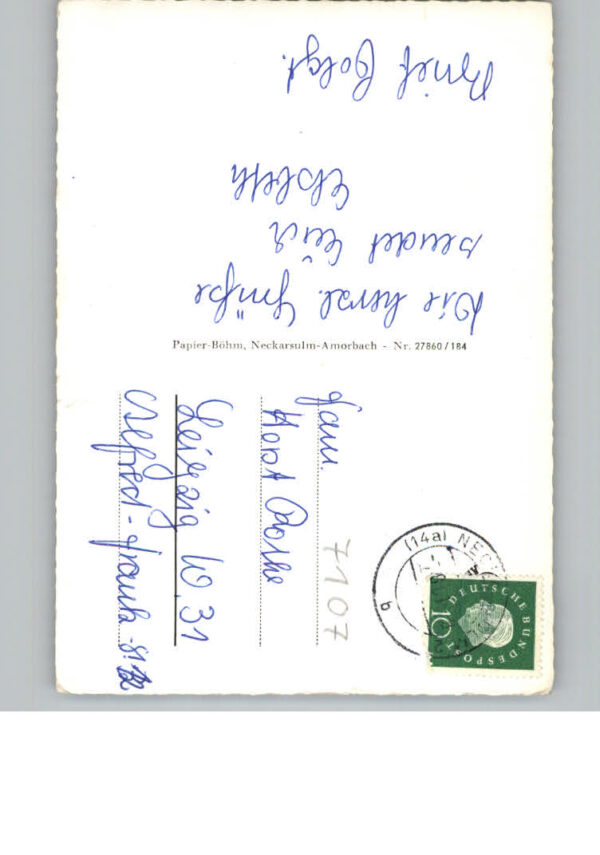 Die herzl. Grüße
sendet Euch
Elsbeth
Brief folgt.
Papier-Böhm, Neckarsulm-Amorbach - Nr. 27860/184
Fam.
Horst Rothe
Leipzig W. 31
Alfred-Frank-St.
7107
(14a) NEC
b
DEUTSCHE BUNDESPOST
10